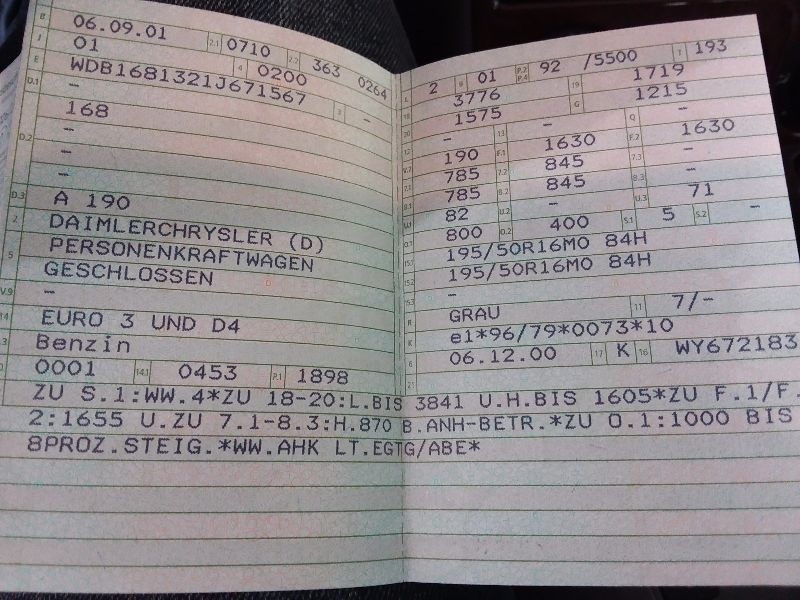 B 06.09.01 2.1 0710 2.2 363 0264
J 01 4 0200
E WDB1681321J671567 3 -
D.1 -
168
D.2 -
-
-
D.3 A 190
2 DAIMLERCHRYSLER (D)
5 PERSONENKRAFTWAGEN
GESCHLOSSEN
V.9 -
14 EURO 3 UND D4
P.3 Benzin
10 0001 14.1 0453 P.1 1898
L 2 9 01 P.2 P.4 92 /5500 T 193
18 3776 19 1719
20 1575 G 1215
12 - 13 - Q -
V.7 190 F.1 1630 F.2 1630
7.1 785 7.2 845 7.3 -
8.1 785 8.2 845 8.3 -
U.1 82 U.2 - U.3 71
O.1 800 O.2 400 S.1 5 S.2 -
15.1 195/50R16MO 84H
15.2 195/50R16MO 84H
15.3 -
R GRAU 11 7/-
K e1*96/79*0073*10
6 06.12.00 17 K 16 WY672183
21
ZU S.1:WW.4*ZU 18-20:L.BIS 3841 U.H.BIS 1605*ZU F.1/F.
2:1655 U.ZU 7.1-8.3:H.870 B.ANH-BETR.*ZU O.1:1000 BIS
8PROZ.STEIG.*WW.AHK LT.EGTG/ABE*